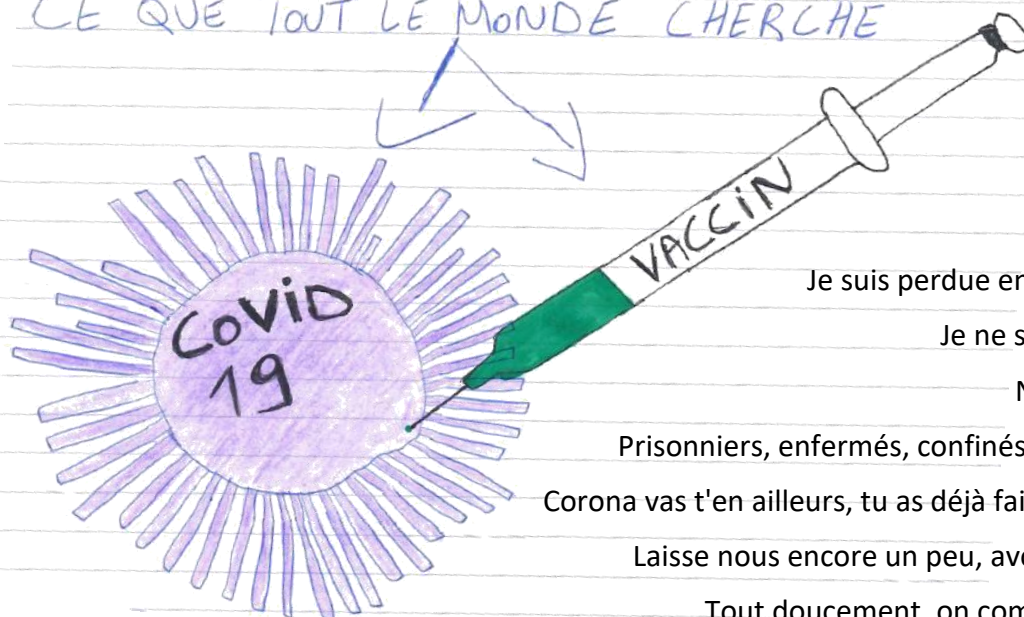 CE QUE TOUT LE MONDE CHERCHE
VACCIN
COVID
19
Je suis perdue
Je ne
Prisonniers, enfermés, confinés
Corona vas t'en ailleurs, tu as déjà
Laisse nous encore un peu,
Tout doucement, on